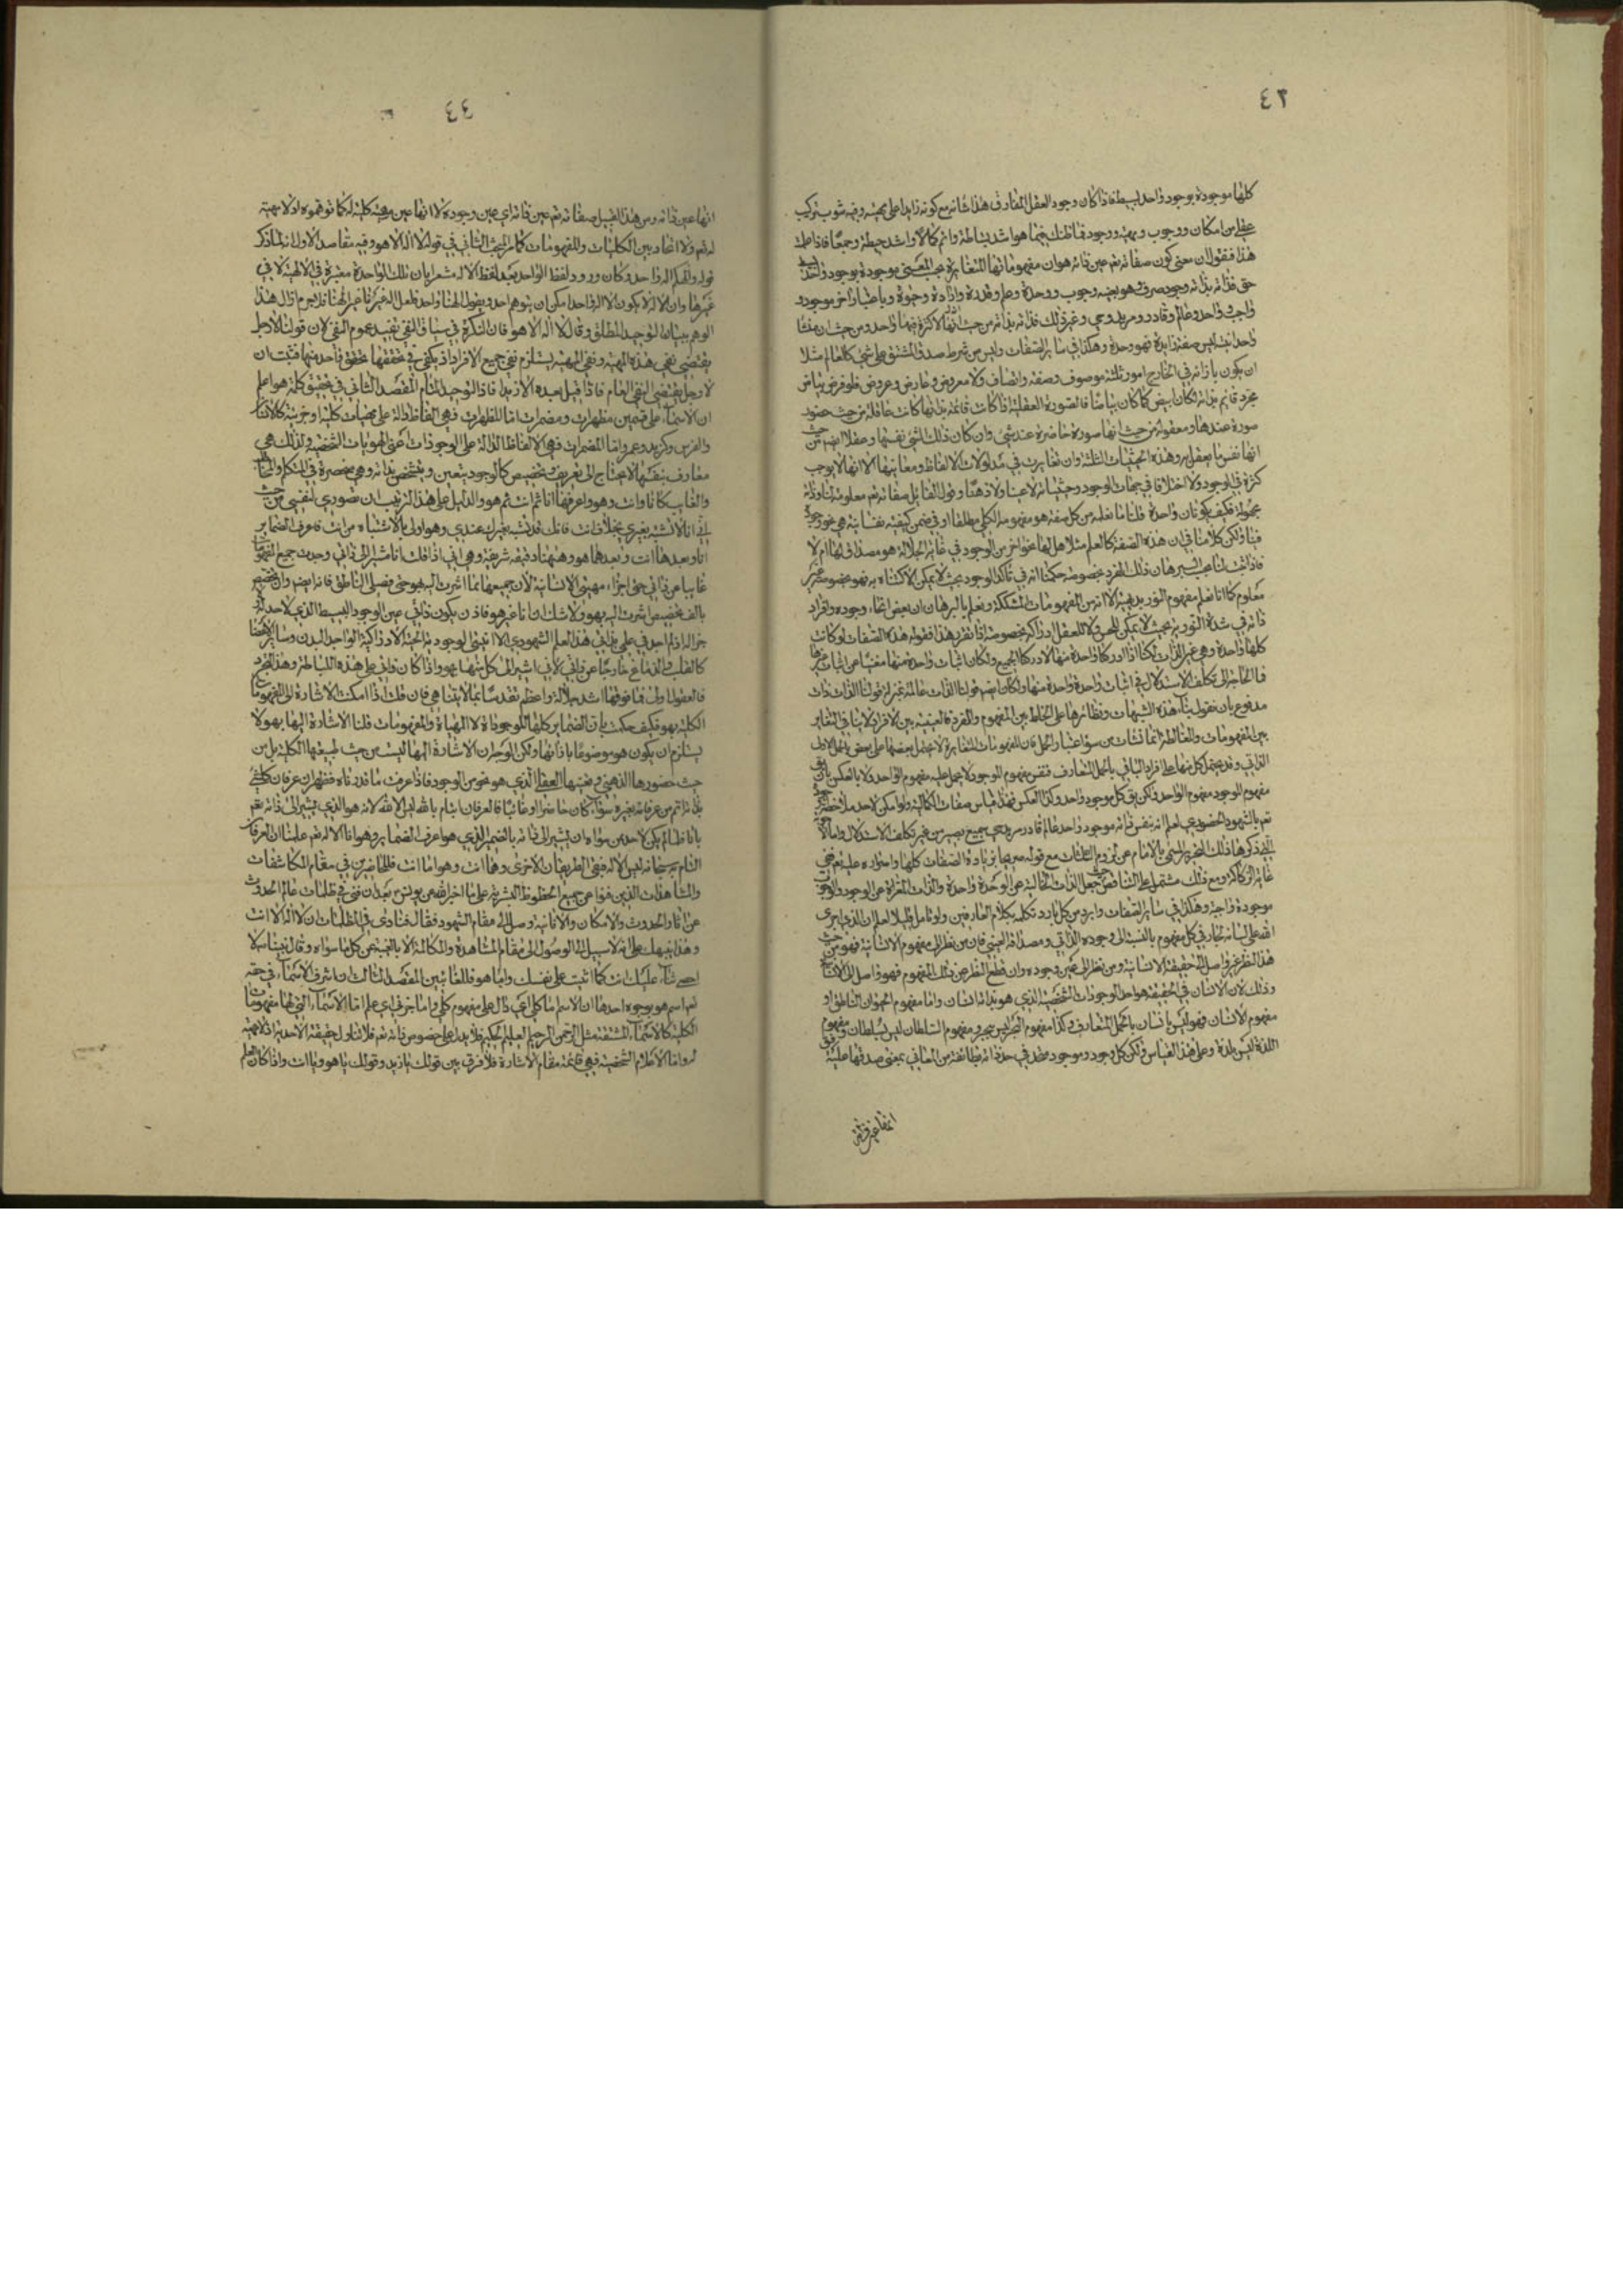 ٤٣
كلها موجودة بوجود واحد بسيط فاذا كان وجود العقل المفارق هذا شانه مع كونه زايدا على مهيته وفيه شوب تركيب
عقلى من امكان ووجوب ومهية ووجود فما ظنك بما هو اشد بساطة واتم كمالا واشد حيطة وجمعا فاذا علمت
هذا فنقول ان معنى كون صفاته تعم عين ذاته هو ان مفهوماتها المتغايرة بحسب المعنى موجودة بوجود واحد بسيط
حق فذاته بذاته وجود صرف هو بعينه وجوب ووحدة وعلم وقدرة وارادة وحيوة وباعتبار اخر موجود و
واجب وواحد وعالم وقادر ومريد وحى وغير ذلك فذاته بذاته من حيث انها لاكثرة فيها واحد ومن حيث ان منشا
واحديته ليس صفة زايدة فهو وحدة وهكذا فى ساير الصفات وليس من شرط صدق المشتق على شئ كالعالم مثلا
ان يكون بازائه فى الخارج امور ثلثة موصوف وصفة واتصاف ولا معروض وعارض وعروض فلو فرض بياض
مجرد قايم بذاته لكان ابيض كما كان بياضا فالصورة العقلية اذا كانت قائمة بذاتها كانت عاقلة من حيث حضور
صورة عندها ومعقولة من حيث انها صورة حاضرة عند شئ وان كان ذلك الشئ نفسها وعقلا ايضم من حيث
انها نفس ما يعقل به وهذه الحيثيات الثلثة وان تغايرت فى مدلولات الالفاظ ومعانيها الا انها لا يوجب
كثرة فى الوجود ولا اختلافا فى جهات الوجود وحيثياته لا عينا ولا ذهنا وقول القائل صفاته تعم معلومة لنا وذاته
مجهولة فكيف يكونان واحدة قلنا ما نعلمه من كل صفة هو مفهومه الكلى مطلقا او فى ضمن كيفية نفسانية هى نحو وجودة
فينا ولكن كلامنا فى ان هذه الصفة كالعلم مثلا هل لها نحو اخر من الوجود فى غاية الجلالة هو مصداق لها ام لا
فاذا ثبت لنا بحسب البرهان ذلك الفرد بخصوصه حكمنا انه فى تاكد الوجود بحيث لا يمكن الاكتناه به فهو بخصوصه غير
معلوم كما انا نعلم مفهوم النور بديهة لانه من المفهومات المشككة ونعلم بالبرهان ان بعض انحاء وجوده وافراد
ذاته فى شدة النورية بحيث لا يمكن للحس ولا للعقل ادراكه بخصوصه اذا تقرر هذا فقوله هذه الصفات لو كانت
كلها واحدة وهى عين الذات لكنا اذا ادركنا واحدة منها لادركنا الجميع ولكان اثبات واحدة منها مغنيا عن اثبات غيرها
فما الحاجة الى تكلف الاستدلال فى اثبات واحدة واحدة منها ولكان ايضم قولنا الذات عالمة بمنزلة قولنا الذات ذات
مدفوع بان نقول بناء هذه الشبهات ونظائرها على الخلط بين المفهوم والفرد فالعينية بين الافراد لا ينافى التغاير
بين المفهومات والمغالطة انما نشات من سوء اعتبار الحمل فان المفهومات المتغايرة لا يحمل بعضها على بعض بالحمل الاولى
الذاتى وقد يحتمل كل منها على افراد الباقى بالحمل المتعارف فنفس مفهوم الموجود لا يحمل عليه مفهوم الواحد ولا بالعكس بان يق
مفهوم الوجود مفهوم الواحد ولكن يق كل موجود واحد وكذا العكس فهذا قياس صفات الكمالية ولو امكن لاحد ملاحظة وجوده
تعم بالشهود الحضورى لعلم انه بنفس ذاته موجود واحد عالم قادر مريد حى سميع بصير من غير تكلف الاستدلال واما الاجوبة
التى ذكرها ذلك النحرير المسمى بالامام عن لزوم الثلثات مع قوله صريحا بزيادة الصفات كلها واحواره عليه فهى
غاية الركاكة ومع ذلك مشتمل على التناقض حيث جعل الذات الخالية عن الوحدة واحدة والذات المعراة عن الوجود والوجوب
موجودة واجبة وهكذا فى ساير الصفات وابرد من كل بارد تكلمه بكلام العارفين ولو تامل قليلا لعلم ان الذى اجرى
الله على لسانه تجار فى كل مفهوم بالنسبة الى وجوده الذاتى ومصداقه العينى فان من نظر الى مفهوم الانسانية فهو من حيث
هذا النظر غير واصل الى حقيقة الانسانية ومن نظر الى عين وجوده وان قطع النظر عن ذلك المفهوم فهو واصل الى الانسانية
وذلك لان الانسان فى الحقيقة هو احد الوجودات الشخصية الذى هو بذاته انسان واما مفهوم الحيوان الناطق او
مفهوم الانسان فهو ليس بانسان بالحمل المتعارف وكذا مفهوم الشجر ليس بشجر ومفهوم السلطان ليس بسلطان ومفهوم
اللذة ليس بلذة وعلى هذا القياس ولكن كل وجود وموجود متحد فى حد ذاته بطائفة من المعانى بمعنى صدقها عليه
انها عين ذاته
٤٤
انها عين ذاته ومن هذا القبيل صفاته تعم عين ذاته اى عين وجوده لا انها عين مهية كلية له كما توهموه اذ لا مهية
له تعم ولا اتحاد بين الكليات والمفهومات كما مر البحث الثانى فى قوله لا اله الا هو وفيه مقاصد الاول انه لما ذكر
قوله والهكم اله واحد وكان ورود لفظ الواحد بعد لفظ الاله مشعرا بان تلك الوحدة معتبرة فى الالهية لا فى
غيرها وان الاله لا يكون الا اله واحد امكن ان يتوهم احد ويقول الهنا واحد فلعل اله غيرنا غير الهنا فلا جرم ازال هذا
الوهم ببيان التوحيد المطلق وقال لا اله الا هو فان النكرة فى سياق النفى تفيد عموم النفى لان قولنا لا رجل
يقتضى نفى هذه المهية ونفى المهية يستلزم نفى جميع الافراد اذ يكفى فى تحققها تحقق واحد منها فثبت ان
لا رجل يقتضى النفى العام فاذا قيل بعده الا زيد افاد التوحيد التام المقصد الثانى فى تحقيق كلمة هو اعلم
ان الاسماء على قسمين مظهرات ومضمرات اما المظهرات فهى الفاظ دالة على مهيات كلية او جزئية كالانسان
والفرس وكزيد وعمرو اما المضمرات فهى الالفاظ الدالة على الوجودات اعنى الهويات الشخصية ولذلك هى
معارف بنفسها لا يحتاج الى تعريف وتخصيص كالوجود يتعين ويتشخص بذاته وهى منحصرة فى المتكلم والمخاطب
والغايب كانا وانت وهو واعرفها انا ثم انت ثم هو والدليل على هذا الترتيب ان تصورى لنفسى من حيث
انى انا لا تشتبه بغيرى بخلاف انت فانك قد تشتبه بغيرك عندى وهو اولى بالاشتباه من انت فاعرف الضماير
انا وبعدها انت وبعدهما هو وههنا دقيقة شريفة وهى انى اذا قلت انا مشيرا الى ذاتى وجدت جميع المفهومات
غايبا عن ذاتى حتى اجزاء مهيتى الانسانية لان جميعها مما اشرت اليه بهو حتى فصلى الناطق فانه ايضم وان تخصص
بالف تخصيص اشرت اليه بهو ولا شك ان انا غير هو فاذن يكون ذاتى عين الوجود البسيط الذى لا حد له ولا
جزء له اذ لم اجد فى علمى بذاتى هذا العلم الشهودى الا انيتى الوجودية الحية الادراكية الواحد البدن وساير الاعضا
كالقلب والدماغ خارجا عن ذاتى لانى اشير الى كل منها بهو واذا كان ذاتى على هذه البساطة وهذا التجرد
فالعقول اولى فما فوقها اشد جلالة واعظم تقدسا عما لا يتناهى فان قلت اذا امكن الاشارة الى المفهومات
الكلية بهو فكيف حكمت بان الضماير كلها للوجودات لا المهيات والمفهومات قلنا الاشارة اليها بهو لا
يستلزم ان يكون هو موضوعا بازائها ولكن الوجه ان الاشارة اليها ليست من حيث طبيعتها الكلية بل من
حيث حضورها الذهنى وتعينها العقلى الذى هو نحو من الوجود فاذا عرفت ما قدرناه فظهر ان عرفان كل شئ
بذاته اتم من عرفانه بغيره سواء كان حاضرا او غائبا فالعرفان التام بالله ليس الا لله لانه هو الذى يشير الى ذاته تعم
بانا فلما لم يكن لاحد من سواه ان يشير الى ذاته بالضمير الذى هو اعرف الضماير وهو انا الا له تعم علمنا ان العرفان
التام به سبحانه ليس الا له فبقى الطريقان الاخرى وهما انت وهو اما انت فللحاضرين فى مقام المكاشفات
والمشاهدات الذين فنوا عن جميع الحظوظ البشرية على ما اخبر الله عن يونس بعد ان فنى فى ظلمات عالم الحدوث
عن اثار الحدوث والامكان والانانية وصل الى مقام الشهود فقال فنادى فى الظلمات ان لا اله الا انت
وهذا ينبهك على انه لا سبيل الى الوصول الى مقام المشاهدة والمكالمة الا بالغيبة عن كل ما سواه وقال نبينا ص لا
احصى ثناء عليك انت كما اثنيت على نفسك واما هو فللغائبين المقصد الثالث ان اشرف الاسماء فى حقه
تعم اسم هو بوجوه احدها ان الاسم اما كلى اى دال على مفهوم كلى واما جزئى اى علم اما الاسماء التى لها مفهومات
الكلية كالاسماء المشتقة مثل الرحمن الرحيم العليم الحكيم فلا يدل على خصوص ذاته تعم فلا تتناول حقيقة الاحدية اذ لا مهية
له واما الاعلام الشخصية فهى قائمة مقام الاشارة فلا فرق بين قولك يا زيد وقولك يا هو ويا انت واذا كان العلم